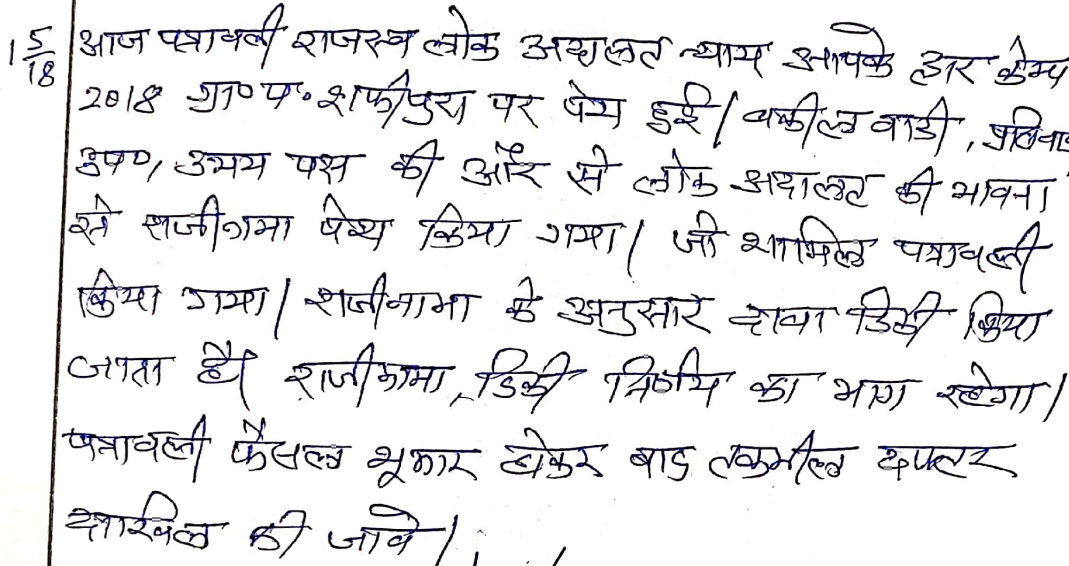 1 5/18 आज पत्रावली राजस्व लोक अदालत न्याय आपके द्वार केम्प
2018 ग्रा० पं. शफीपुरा पर पेश हुई। वकील वादी, प्रतिवादी
उप०, उभय पक्ष की और से लोक अदालत की भावना
से राजीनामा पेश्य किया गया। जो शामिल पत्रावली
किया गया। राजीनामा के अनुसार दावा डिक्री किया
जाता है। राजीनामा, डिक्री निर्णय का भाग रहेगा।
पत्रावली फैसल शूमार होकर बाद तकमील दफ्तर
दाखिल की जावे।